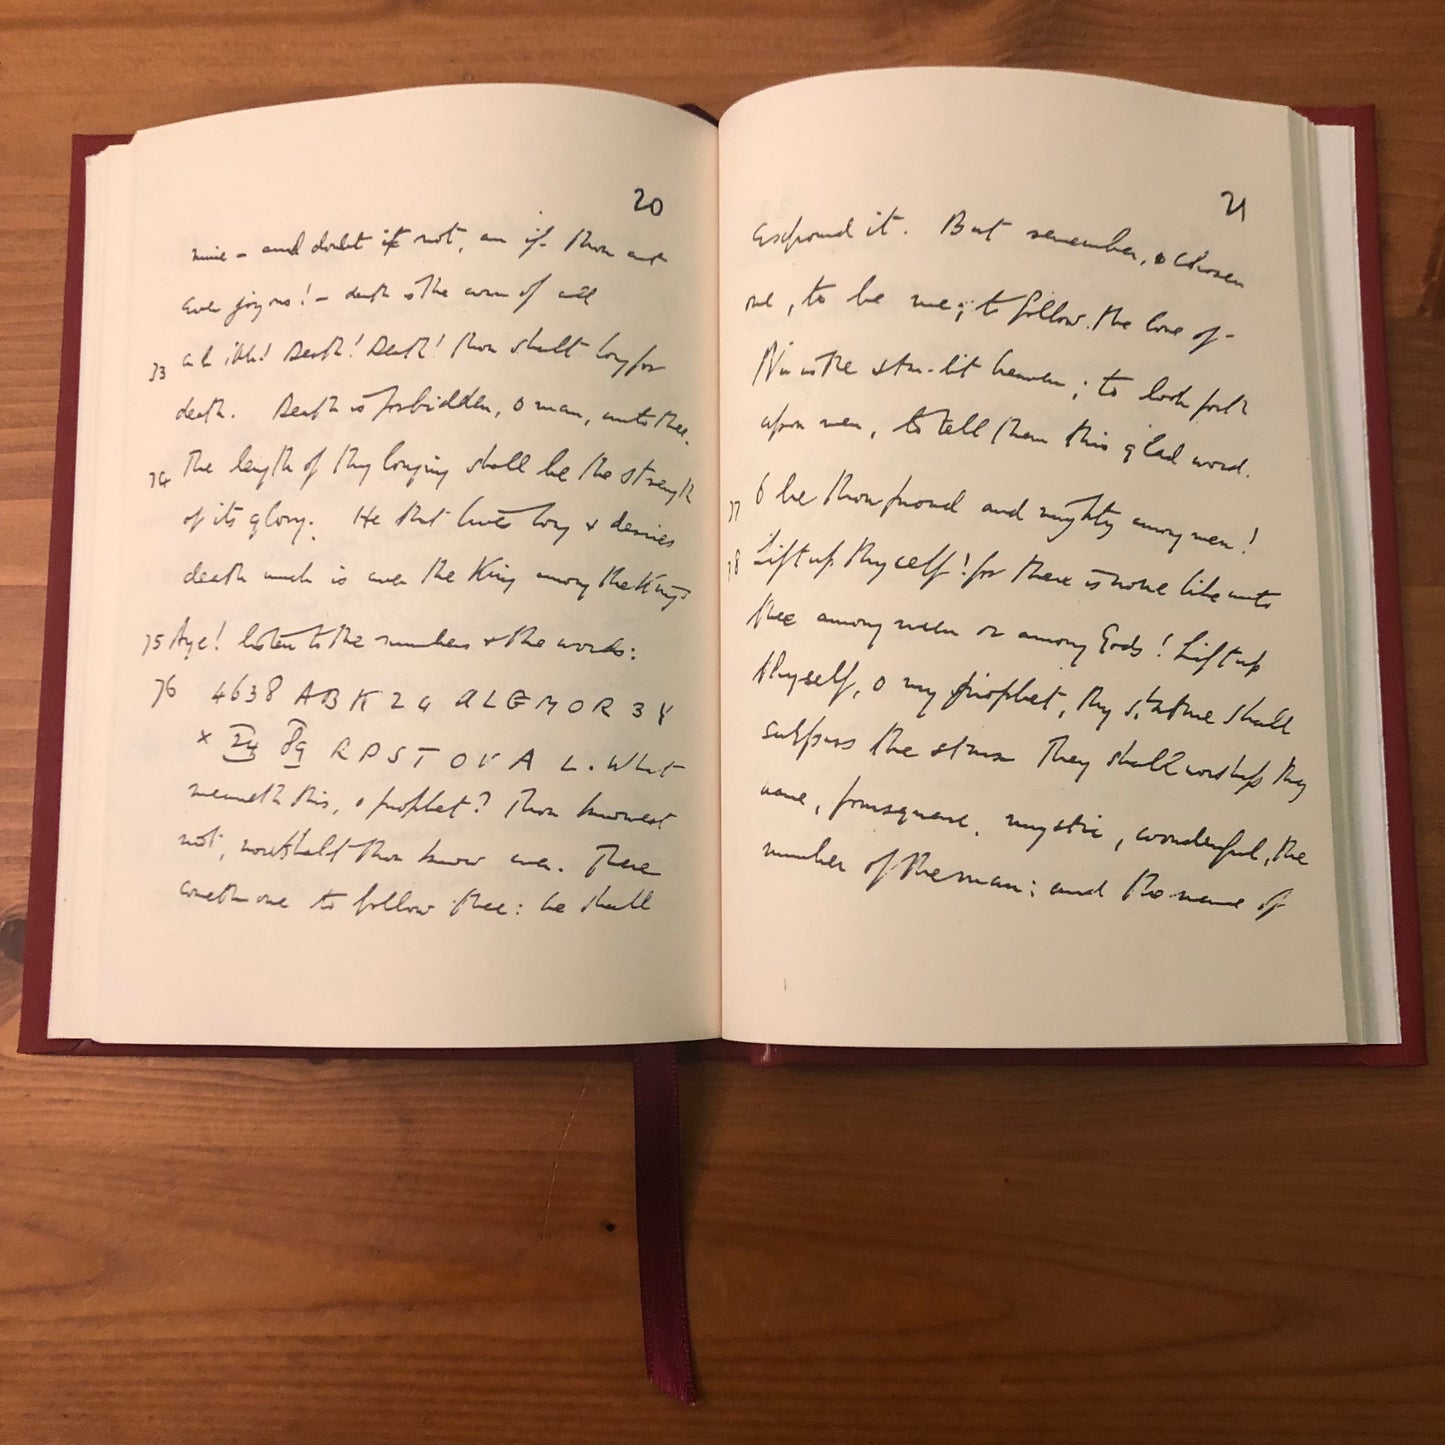 20
mine - and doubt it not, an if thou art
ever joyous! - death is the crown of all
73 ah! ah! Death! Death! thou shalt long for
death. Death is forbidden, o man, unto thee.
74 The length of thy longing shall be the strength
of its glory. He that lives long & desires
death much is ever the King among the Kings
75 Aye! listen to the numbers & the words:
76 4638 ABK 24 ALGMOR 3Y
X 24 89 RPSTOVAL. What
meaneth this, o prophet? Thou knowest
not, nor shalt thou know ever. There
cometh one to follow thee: he shall
21
expound it. But remember, o chosen
one, to be me; to follow the love of
Nu in the star-lit heaven; to look forth
upon men, to tell them this glad word.
77 O be thou proud and mighty among men!
78 Lift up thyself! for there is none like unto
thee among men or among Gods! Lift up
thyself, o my prophet, thy stature shall
surpass the stars They shall worship thy
name, foursquare, mystic, wonderful, the
number of the man; and the name of